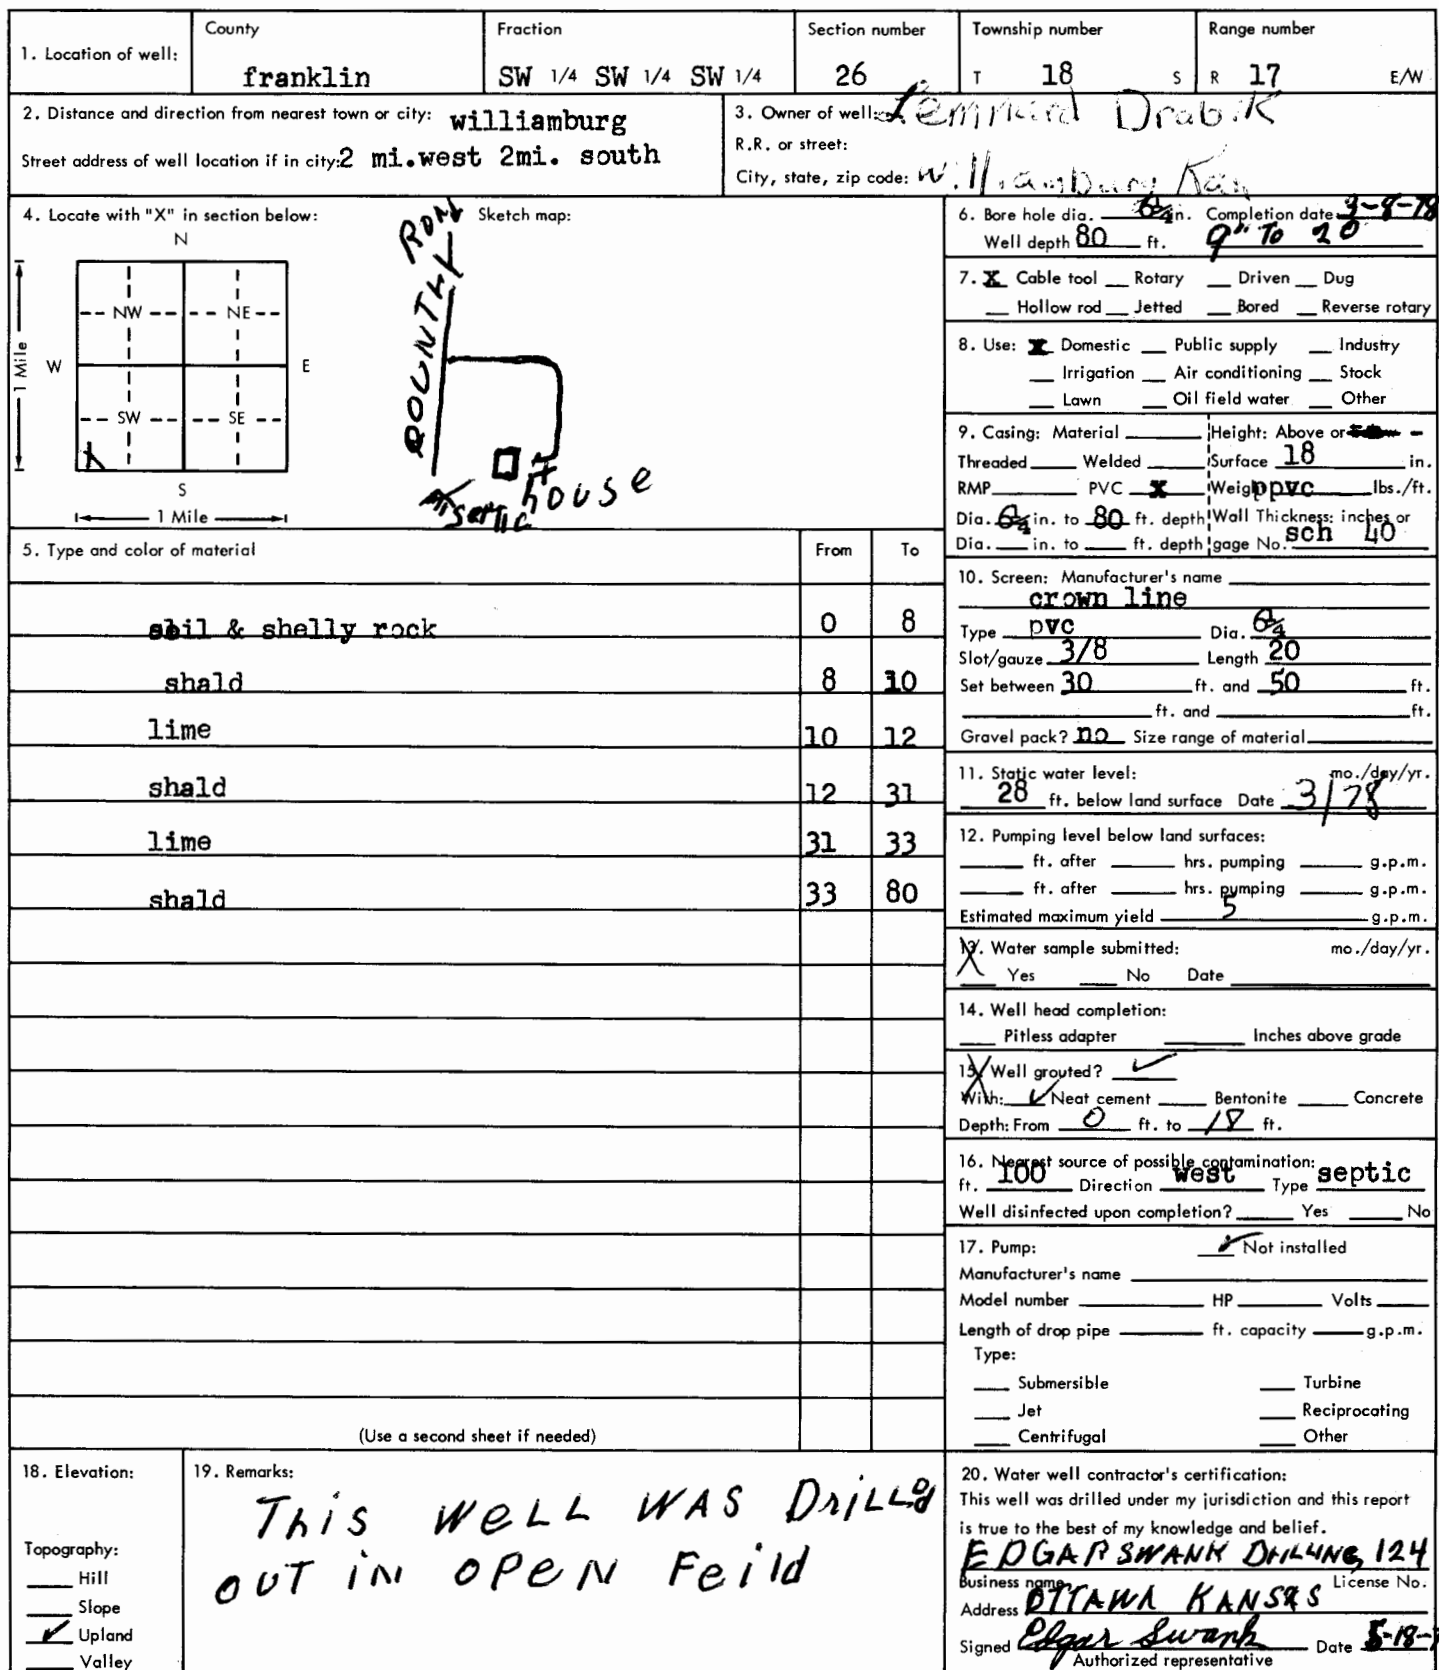 1. Location of well: County Fraction Section number Township number Range number
franklin SW 1/4 SW 1/4 SW 1/4 26 T 18 S R 17 E/W
2. Distance and direction from nearest town or city: williamburg
Street address of well location if in city: 2 mi.west 2mi. south
3. Owner of well: Drabik
R.R. or street:
City, state, zip code: Williamburg Kan
4. Locate with "X" in section below:
N
NW NE
W E
SW SE
S
1 Mile
1 Mile
Sketch map:
house
septic
5. Type and color of material From To
soil & shelly rock 0 8
shald 8 10
lime 10 12
shald 12 31
lime 31 33
shald 33 80
(Use a second sheet if needed)
6. Bore hole dia. 6¼ in. Completion date 3-8-78
Well depth 80 ft. 9" To 20
7. X Cable tool Rotary Driven Dug
Hollow rod Jetted Bored Reverse rotary
8. Use: X Domestic Public supply Industry
Irrigation Air conditioning Stock
Lawn Oil field water Other
9. Casing: Material Height: Above or
Threaded Welded Surface 18 in.
RMP PVC X Weight ppvc lbs./ft.
Dia. 6¼ in. to 80 ft. depth Wall Thickness: inches or
Dia. in. to ft. depth gage No. sch 40
10. Screen: Manufacturer's name
crown line
Type pvc Dia. 6¼
Slot/gauze 3/8 Length 20
Set between 30 ft. and 50 ft.
ft. and ft.
Gravel pack? no Size range of material
11. Static water level: mo./day/yr.
28 ft. below land surface Date 3/78
12. Pumping level below land surfaces:
ft. after hrs. pumping g.p.m.
ft. after hrs. pumping g.p.m.
Estimated maximum yield 5 g.p.m.
13. Water sample submitted: mo./day/yr.
Yes No Date
14. Well head completion:
Pitless adapter Inches above grade
15. Well grouted? ✓
With: ✓ Neat cement Bentonite Concrete
Depth: From 0 ft. to 18 ft.
16. Nearest source of possible contamination:
ft. 100 Direction west Type septic
Well disinfected upon completion? Yes No
17. Pump: ✓ Not installed
Manufacturer's name
Model number HP Volts
Length of drop pipe ft. capacity g.p.m.
Type:
Submersible Turbine
Jet Reciprocating
Centrifugal Other
18. Elevation:
Topography:
Hill
Slope
✓ Upland
Valley
19. Remarks:
This WELL WAS DriLLed
OUT iN OPEN Feild
20. Water well contractor's certification:
This well was drilled under my jurisdiction and this report
is true to the best of my knowledge and belief.
EDGAR SWANK DRILLING 124
Business name License No.
Address OTTAWA KANSAS
Signed Edgar Swank Date 5-18-
Authorized representative